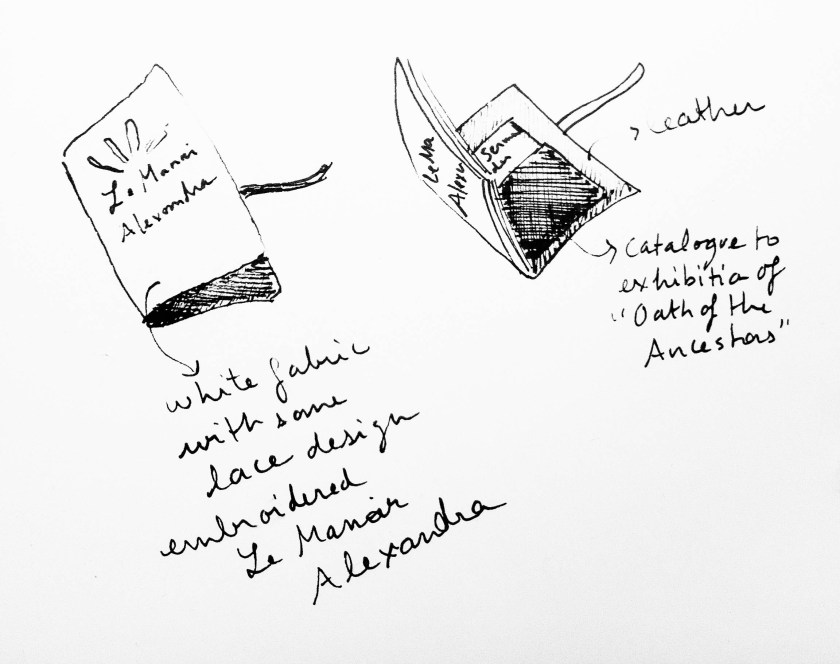 Le Manoir
Alexandra
white fabric
with some
lace design
embroidered
Le Manoir
Alexandra
Le Ma
Alexa
Serment
des
leather
Catalogue to
exhibitio of
"Oath of the
Ancestors"